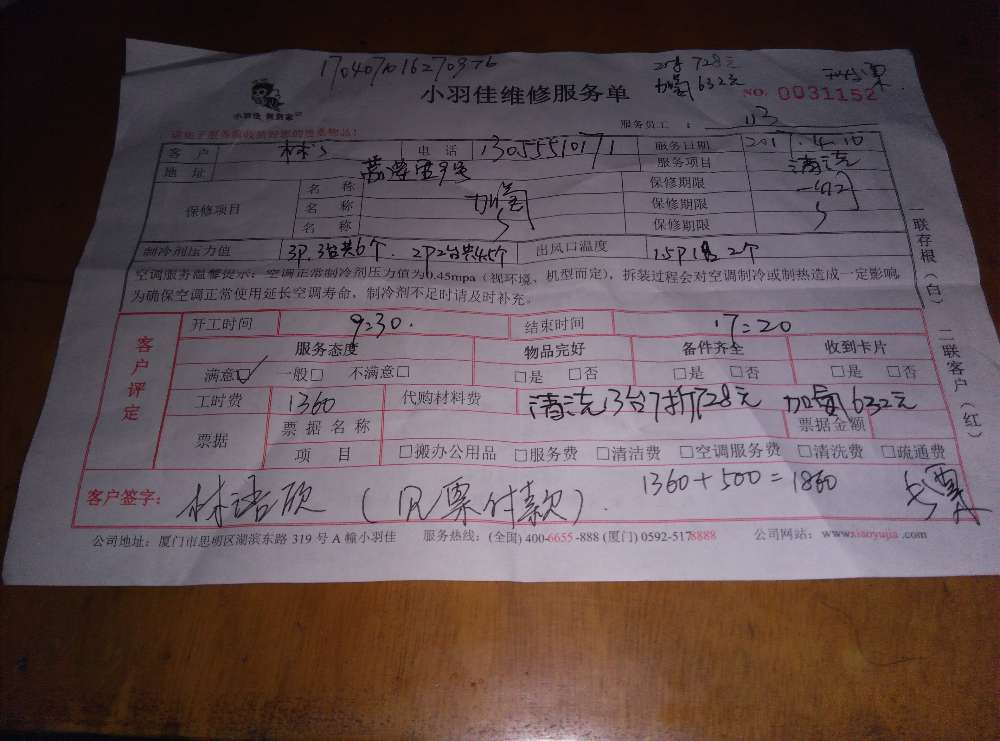 17040701627
728元
加氟632元
小羽佳维修服务单
NO. 0031152
小羽佳 到到家
服务员工：
客 户 林 电 话 13055510171 服务日期 2017.4.10
地 址 服务项目 清洗
保修项目 名 称 加氟 保修期限
名 称 保修期限
名 称 保修期限
制冷剂压力值 3P.3台共6个. 2P2台共4.5个 出风口温度 1.5P1台2个
空调服务温馨提示：空调正常制冷剂压力值为0.45mpa（视环境、机型而定），拆装过程会对空调制冷或制热造成一定影响，
为确保空调正常使用延长空调寿命，制冷剂不足时请及时补充。
一联存根（白） 二联客户（红）
客户评定
开工时间 9:30. 结束时间 17:20
服务态度 物品完好 备件齐全 收到卡片
满意☑ 一般□ 不满意□ □是 □否 □是 □否 □是 □否
工时费 1360 代购材料费 清洗13台7折728元 加氟632元
票据 票据名称 票据金额
项 目 □搬办公用品 □服务费 □清洁费 □空调服务费 □清洗费 □疏通费
客户签字： 林语欣（见票付款） 1360+500=1860
公司地址：厦门市思明区湖滨东路 319 号 A 幢小羽佳 服务热线：(全国) 400-6655-888 (厦门) 0592-5178888 公司网站：www.xiaoyujia.com